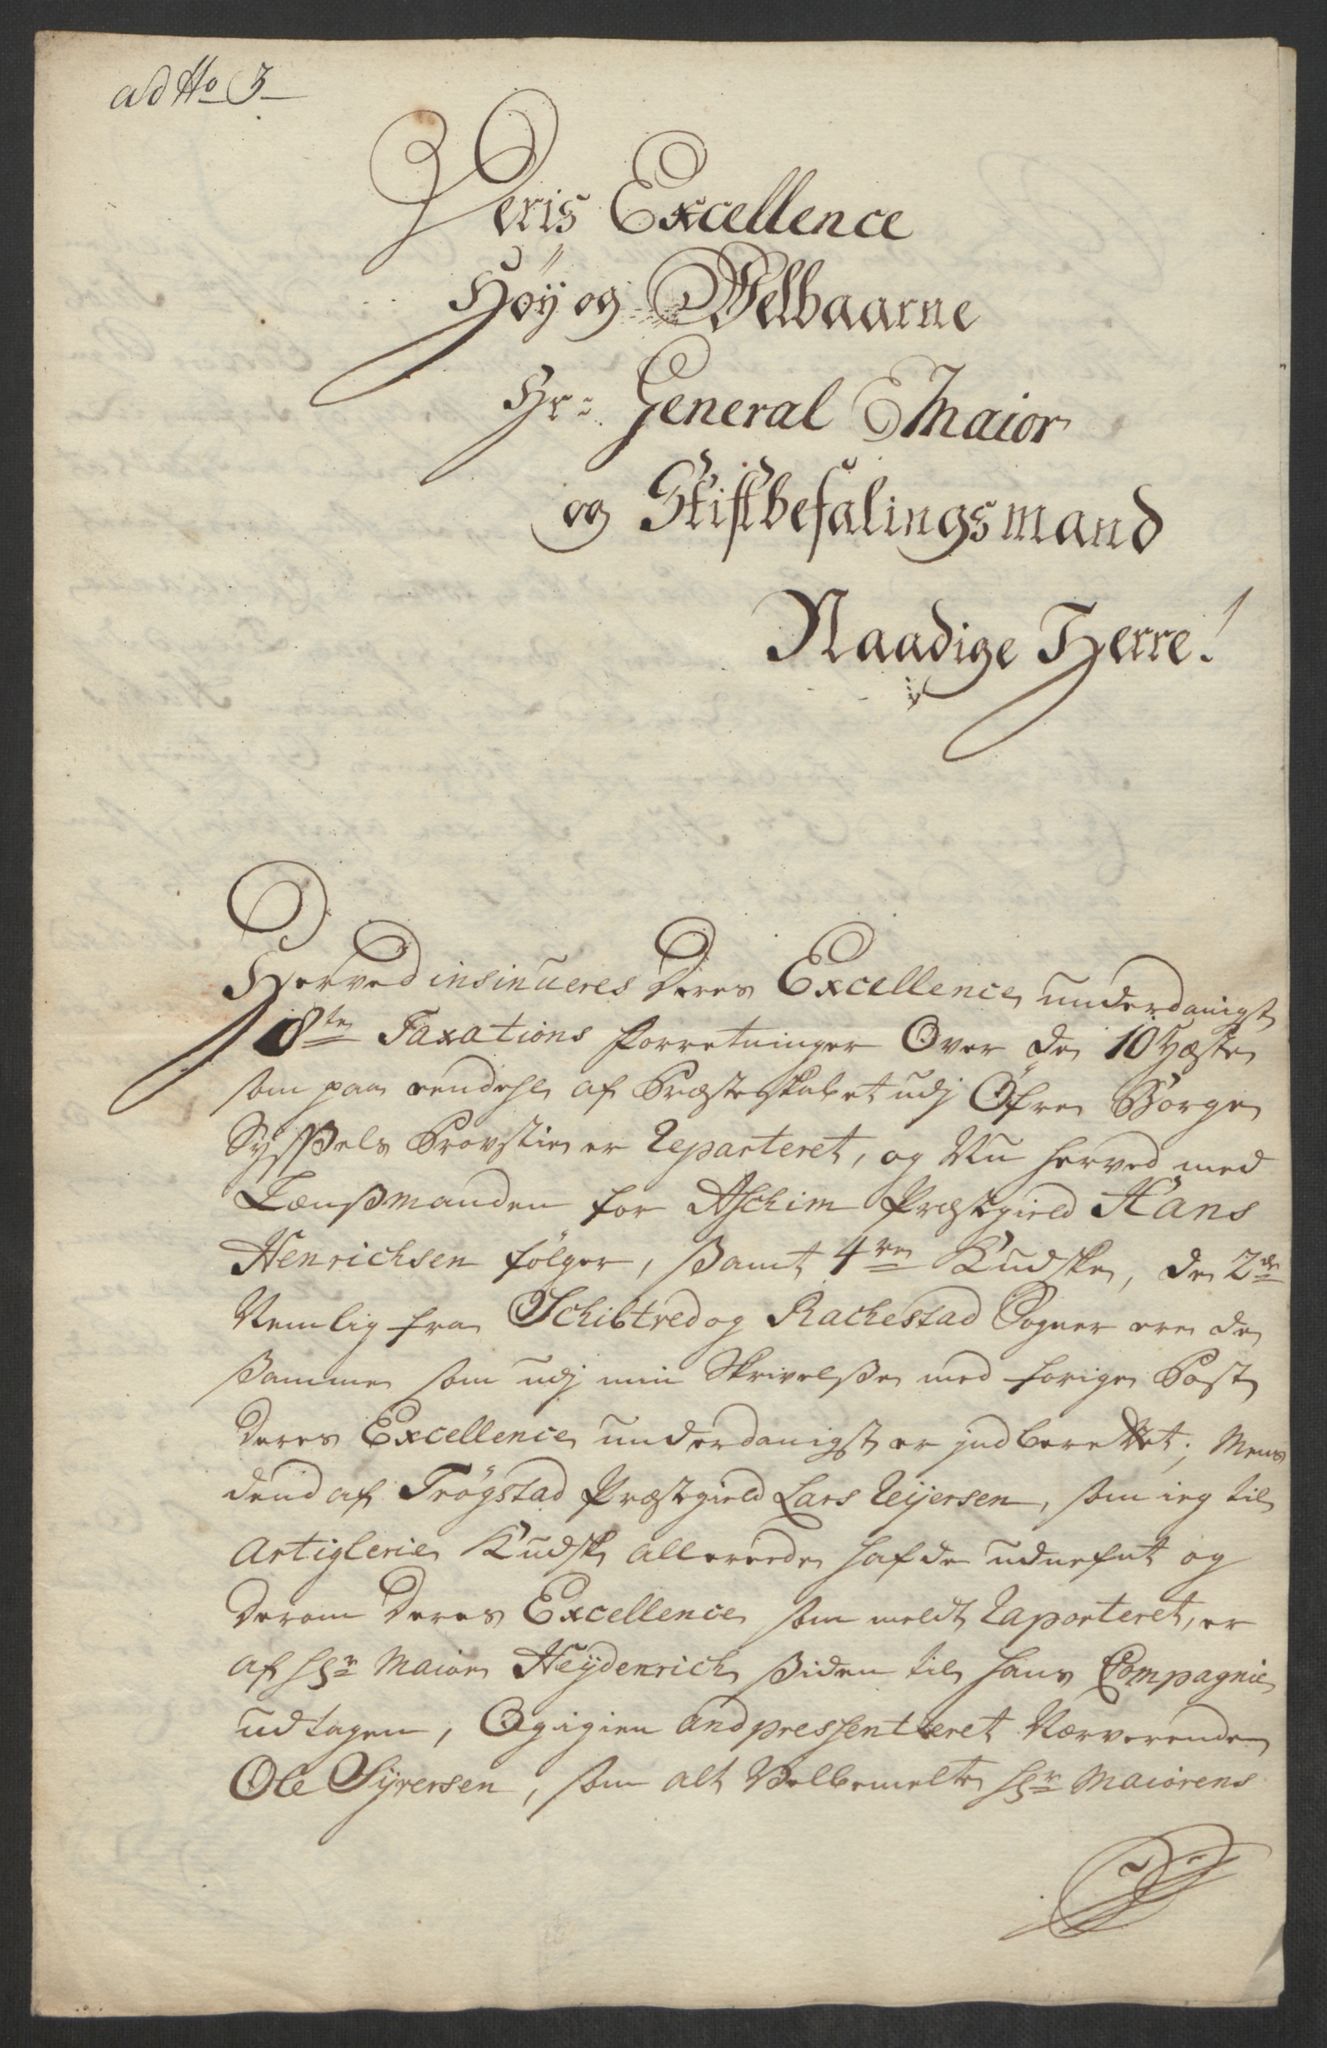 ad No 3
Deris Excellence
Høy og Velbaarne
Hr: General Maior
og Stiftbefalingsmand
Naadige Herre!
Herved insinueres Deres Excellence underdanigst
8te Taxations Forretninger Over de 10 Hæste
som paa eendehl af Præsteskabet udj Öfre Borge
Syssels Provstie er Reparteret, og Nu herved med
Lænßmanden for Aschim Præstgield Hans
Henrichsen følger, samt 4re Kudske, de 2de
Nemlig fra Schibtved og Rachestad Sogner ere de
samme som udj min Skrivelße med forige Post
Deres Excellence underdanigst er jndberettet; Mens
dend af Trögstad Præstgield Lars Reijersen, som ieg til
Artiglerie Kudsk allereede hafde udnefnt og
derom Deres Excellence som meldt Raporteret, er
af Hr Maior Heydenrich siden til hans Compagnie
udtagen, Og igien andpressentteret Nærverende
Ole Syversen, som alt Velbemelte Hr Maiorens